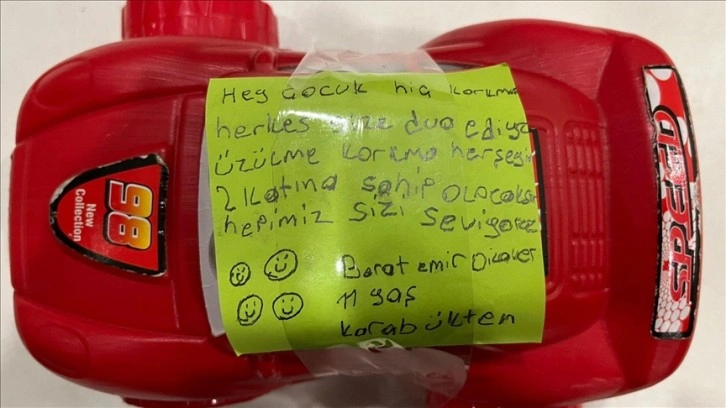 Hey çocuk hiç korkma
herkes size dua ediyor
üzülme korkma herşeyin
2 katına sahip olacaksın
hepimiz sizi seviyoruz
Berat emir Dikaver
11 yaş
karabükten
86
New
Collection
SPEED